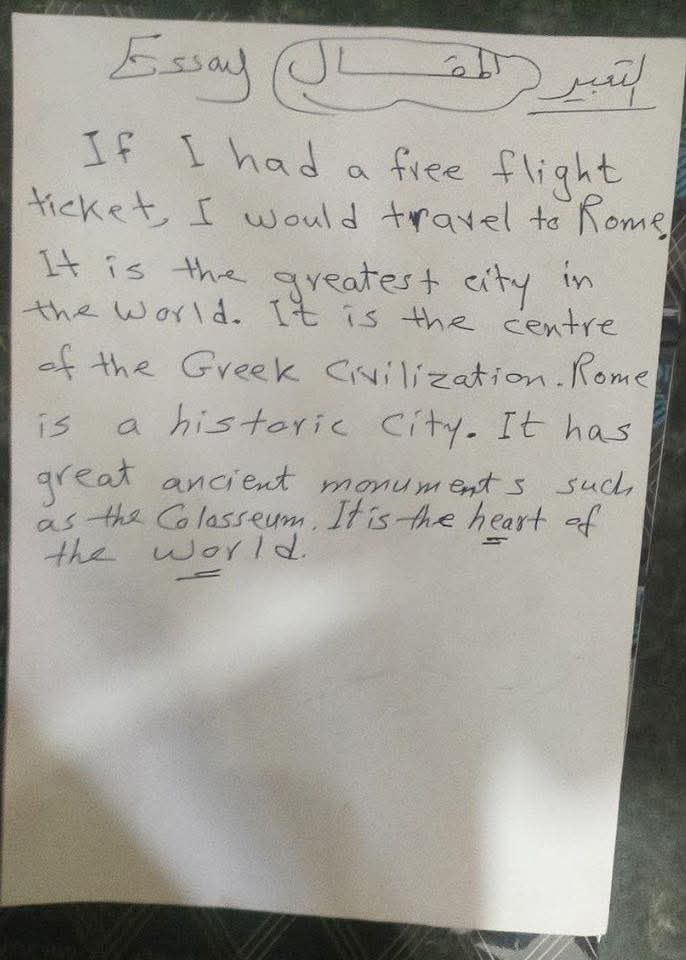 Essay المقال التعبير
If I had a free flight
ticket, I would travel to Rome.
It is the greatest city in
the World. It is the centre
of the Greek Civilization. Rome
is a historic City. It has
great ancient monuments such
as the Colosseum. It is the heart of
the world.